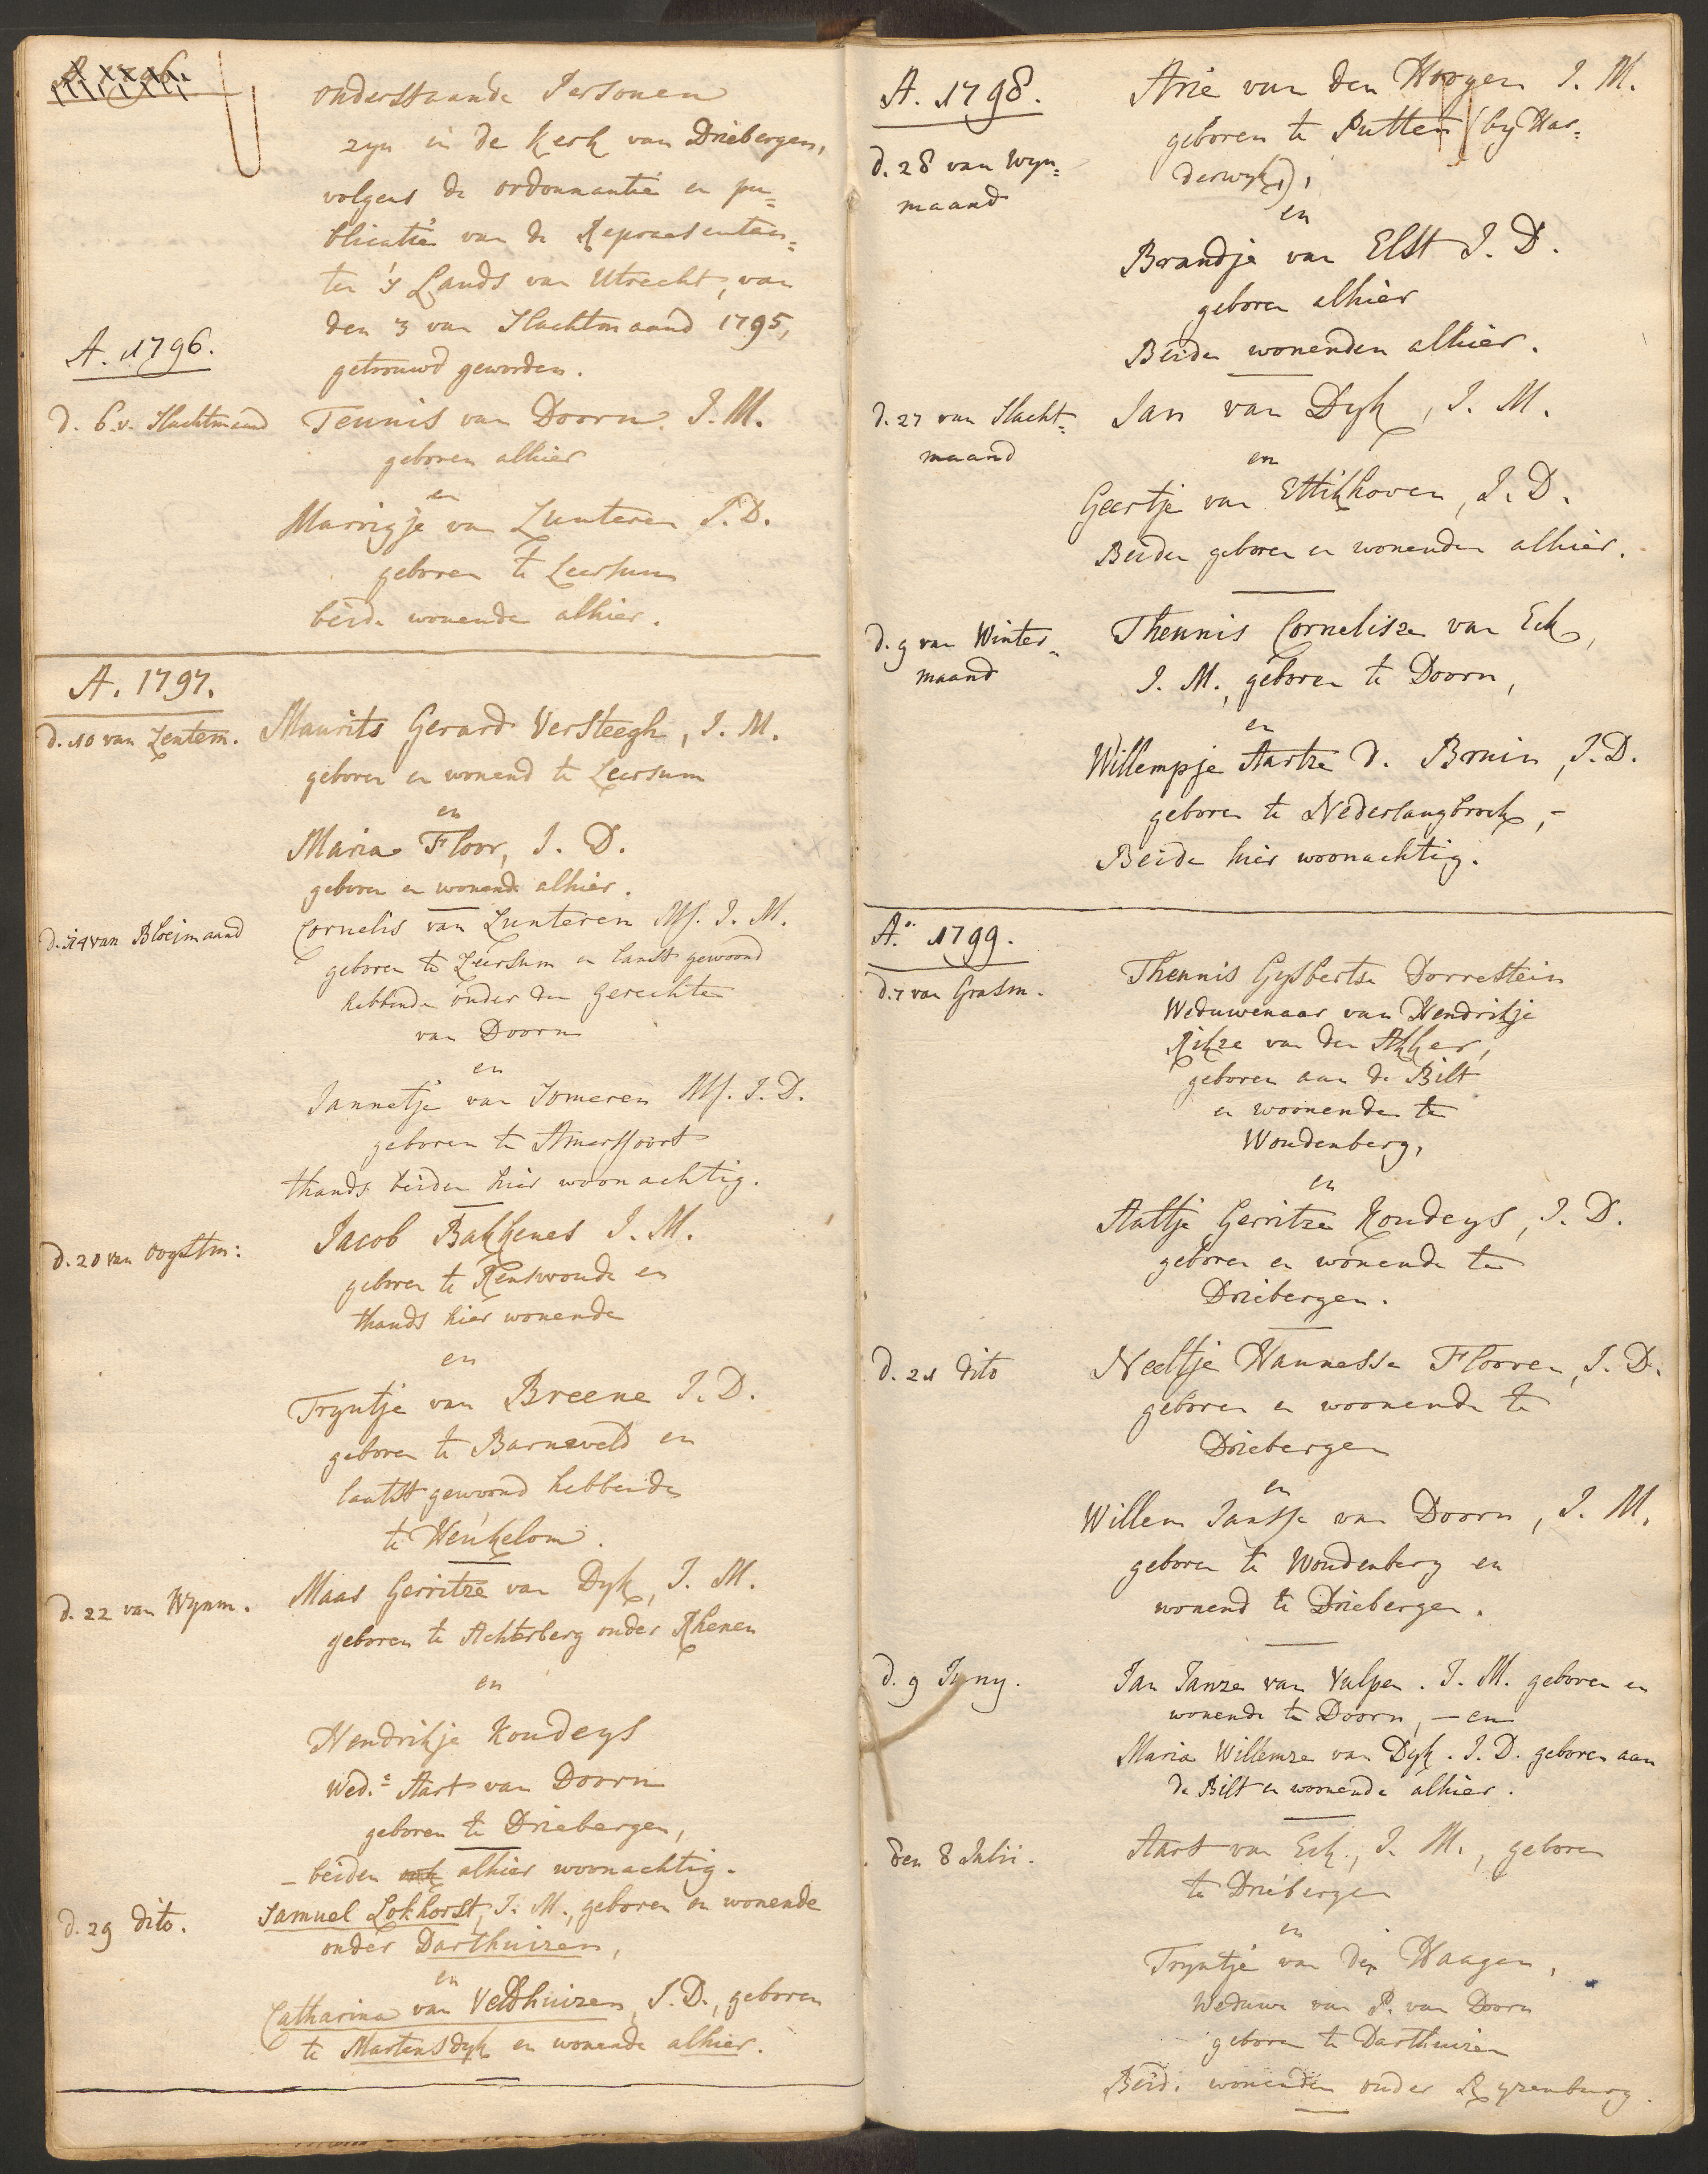 onderstaande Personen
zyn in de Kerk van Driebergen,
volgens de ordonnantie en pu=
blicatie van de Repraesentan=
ten 's Lands van Utrecht, van
den 3 van Slachtmaand 1795,
getrouwd geworden.
A. 1796.
d. 6. v. Slachtmaand
Teunis van Doorn. J. M.
geboren alhier
en
Marrigje van Lunteren J. D.
geboren te Leersum
beide wonende alhier.
A. 1797.
d. 10 van Lentem.
Maurits Gerard Versteegh, J. M.
geboren en wonend te Leersum
en
Maria Floor, J. D.
geboren en wonende alhier.
d. 14 van Bloeimaand
Cornelis van Lunteren Mf. J. M.
geboren te Leersum en laatst gewoond
hebbende onder den gerechte
van Doorn
en
Jannetje van Someren Mf. J. D.
geboren te Amersfoort
thands beiden hier woonachtig.
d. 20 van Oogstm:
Jacob Bakkenes J. M.
geboren te Renswoude en
thands hier wonende
en
Tryntje van Breene J. D.
geboren te Barneveld en
laatst gewoond hebbende
te Heukelom.
d. 22 van Wynm.
Maas Gerritze van Dyk, J. M.
geboren te Achterberg onder Rhenen
en
Hendrikje Koudeys
Wed.e Aart van Doorn
geboren te Driebergen,
– beiden alhier woonachtig.
d. 29 dito.
Samuel Lokhorst, J. M., geboren en wonende
onder Darthuizen,
en
Catharina van Veldhuizen, J. D., geboren
te Martensdyk en wonende alhier.
A. 1798.
d. 28 van Wyn=
maand
Arie van den Hoogen J. M.
geboren te Putten (by Har=
derwyk),
en
Brandje van Elst J. D.
geboren alhier
Beiden wonenden alhier.
d. 27 van Slacht=
maand
Jan van Dyk, J. M.
en
Geertje van Ettikhoven, J. D.
Beiden geboren en wonenden alhier.
d. 9 van Winter=
maand
Theunis Cornelisze van Eck,
J. M., geboren te Doorn,
en
Willempje Aartze d. Bruin, J. D.
geboren te Nederlangbroek, –
Beide hier woonachtig.
A.o 1799.
d. 7 van Grasm.
Theunis Gysbertse Dorrestein
Weduwenaar van Hendrikje
Rikze van den Akker,
geboren aan de Bilt
en woonende te
Woudenberg,
en
Aaltje Gerritze Koudeys, J. D.
geboren en wonende te
Driebergen.
d. 21 dito
Neeltje Hannesse Flooren, J. D.
geboren en woonende te
Driebergen
en
Willem Jansse van Doorn, J. M.
geboren te Woudenberg en
wonend te Driebergen.
d. 9 Juny.
Jan Janze van Vulpen. J. M. geboren en
wonende te Doorn, – en
Maria Willemze van Dyk. J. D. geboren aan
de Bilt en woonende alhier.
den 8 Julii.
Aart van Eck., J. M., geboren
te Driebergen
en
Tryntje van der Haagen,
Weduwe van P. van Doorn
geboren te Darthuizen
Beide wonenden onder Ryzenburg.